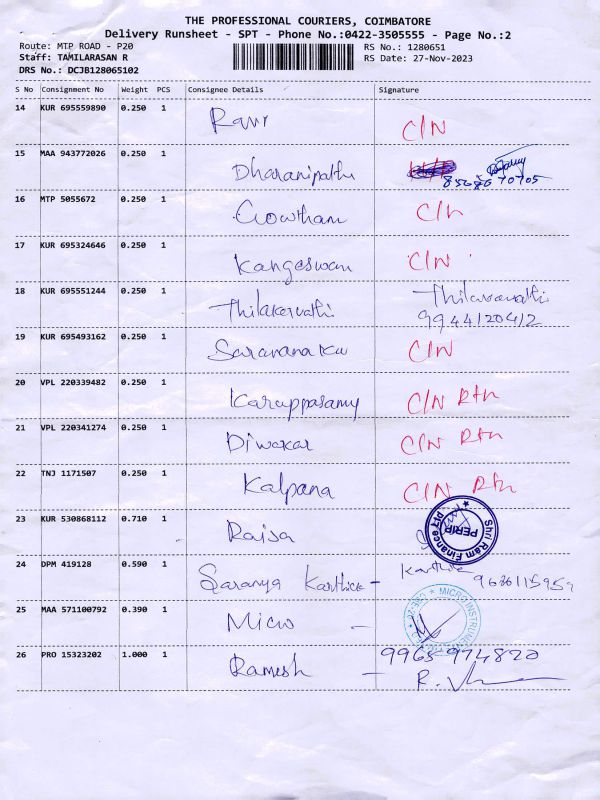 THE PROFESSIONAL COURIERS, COIMBATORE
Delivery Runsheet - SPT - Phone No.:0422-3505555 - Page No.:2
Route: MTP ROAD - P20 RS No.: 1280651
Staff: TAMILARASAN R RS Date: 27-Nov-2023
DRS No.: DCJB128065102
S No Consignment No Weight PCS Consignee Details Signature
14 KUR 695559890 0.250 1 Ravi C/N
15 MAA 943772026 0.250 1 Dharanipathi
16 MTP 5055672 0.250 1 Gowtham C/N
17 KUR 695324646 0.250 1 Kangeswan C/N
18 KUR 695551244 0.250 1 Thilakarvathi Thilaravathi
9944120412
19 KUR 695493162 0.250 1 Saravana Ku C/N
20 VPL 220339482 0.250 1 Karuppasamy C/N Rtn
21 VPL 220341274 0.250 1 Diwakar C/N Rtn
22 TNJ 1171507 0.250 1 Kalpana C/N Rtn
23 KUR 530868112 0.710 1 Raisa Shri Ram Finance PERIP
24 DPM 419128 0.590 1 Saranya Karthick - Karthik
9686115959
25 MAA 571100792 0.390 1 Micro - MICRO INSTRUMENT
26 PRO 15323202 1.000 1 Ramesh - 9965974820